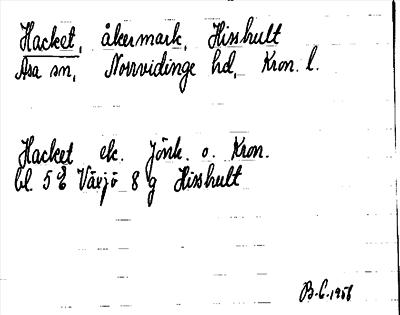 Hacket, åkermark, Hisshult
Asa sn, Norrvidinge hd, Kron. l.
Hacket ek. Jönk. o. Kron.
bl. 5 Växjö 8 g Hisshult
B.G. 1956